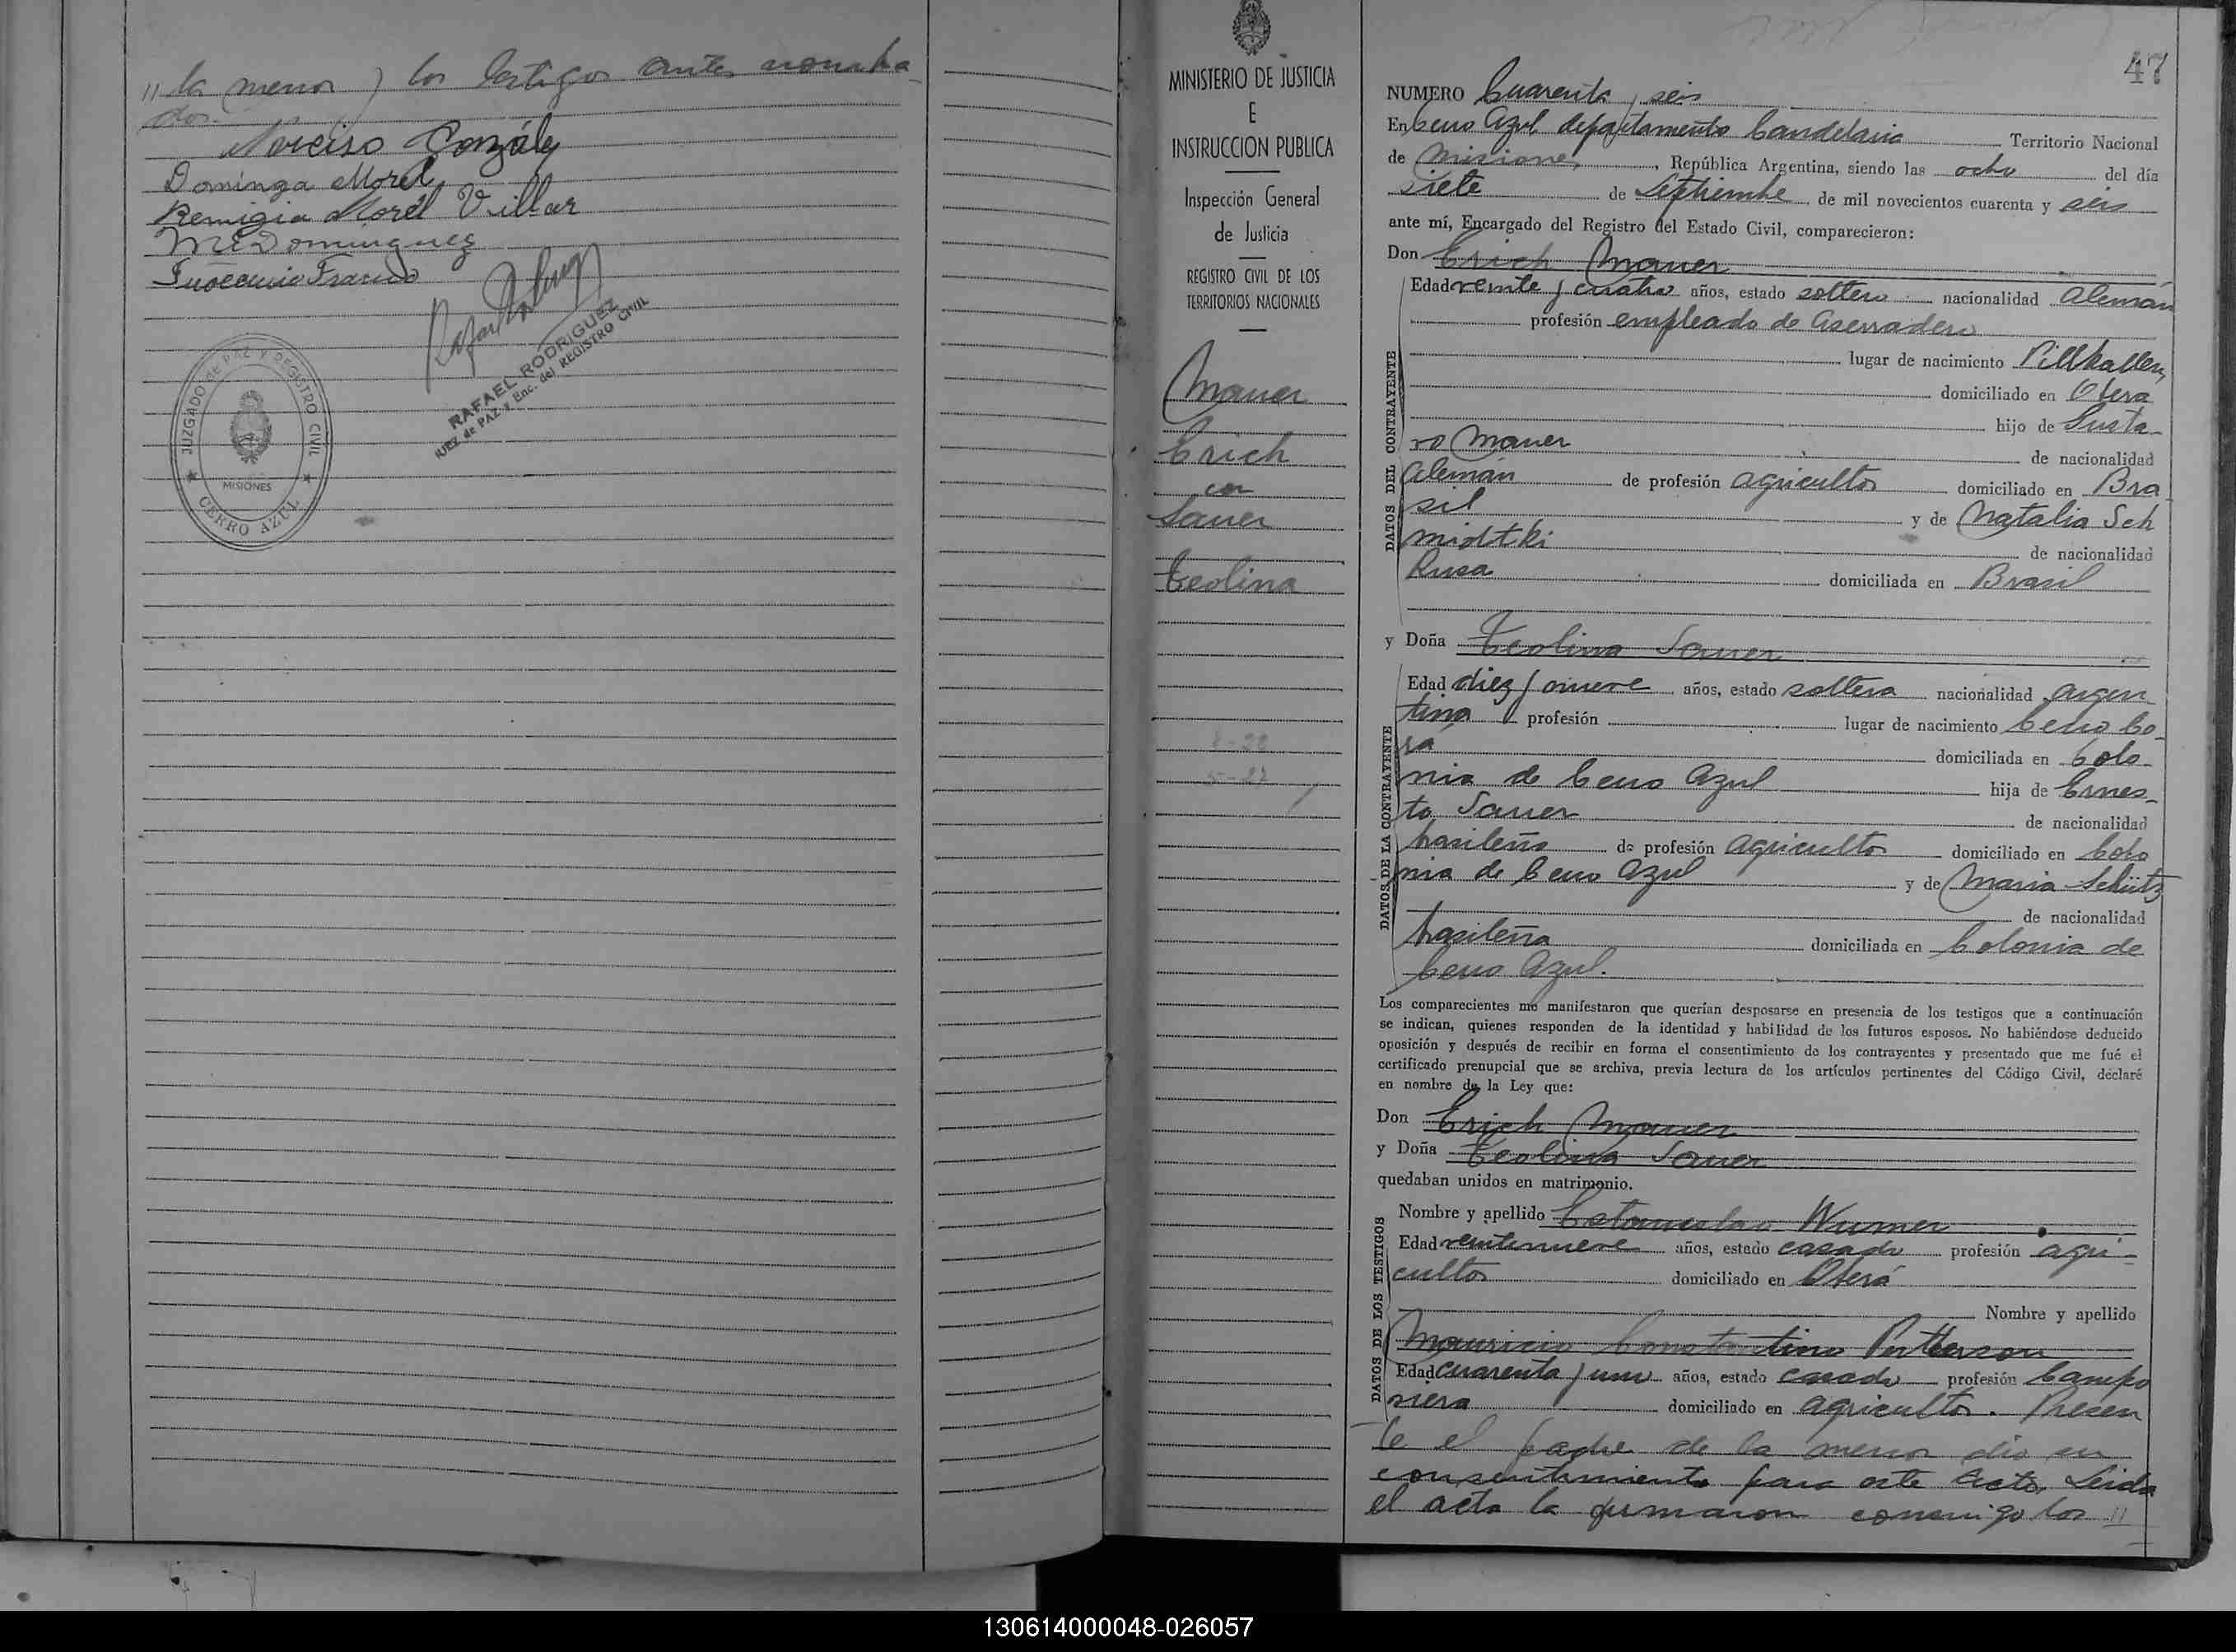 " la menor y los testigos antes nombra-
dos.
Narciso González
Dominga Morel
Remigia Morel Villar
M E Dominguez
Inocencio Franco
RAFAEL RODRIGUEZ
JUEZ de PAZ y Enc. del REGISTRO CIVIL
JUZGADO de PAZ Y REGISTRO CIVIL
MISIONES
CERRO AZUL
MINISTERIO DE JUSTICIA
E
INSTRUCCION PUBLICA
Inspección General
de Justicia
REGISTRO CIVIL DE LOS
TERRITORIOS NACIONALES
Mauer
Erich
con
Sauer
Teolina
47
NUMERO Cuarenta y seis
En Cerro Azul departamento Candelaria Territorio Nacional
de Misiones, República Argentina, siendo las ocho del día
siete de Septiembre de mil novecientos cuarenta y seis
ante mí, Encargado del Registro del Estado Civil, comparecieron:
Don Erich Mauer
DATOS DEL CONTRAYENTE
Edad veinte y cuatro años, estado soltero nacionalidad Alemán
profesión empleado de aserradero
lugar de nacimiento Pillkallen,
domiciliado en Oberá
hijo de Gusta-
vo Mauer de nacionalidad
Alemán de profesión agricultor domiciliado en Bra-
sil y de Natalia Sch
midtki de nacionalidad
Rusa domiciliada en Brasil
y Doña Teolina Sauer
DATOS DE LA CONTRAYENTE
Edad diez y nueve años, estado soltera nacionalidad argen-
tina profesión lugar de nacimiento Cerro Co-
rá domiciliada en Colo-
nia de Cerro Azul hija de Ernes-
to Sauer de nacionalidad
brasileño de profesión agricultor domiciliado en Colo
nia de Cerro Azul y de Maria Schütz
de nacionalidad
brasileña domiciliada en Colonia de
Cerro Azul.
Los comparecientes me manifestaron que querían desposarse en presencia de los testigos que a continuación
se indican, quienes responden de la identidad y habilidad de los futuros esposos. No habiéndose deducido
oposición y después de recibir en forma el consentimiento de los contrayentes y presentado que me fué el
certificado prenupcial que se archiva, previa lectura de los artículos pertinentes del Código Civil, declaré
en nombre de la Ley que:
Don Erich Mauer
y Doña Teolina Sauer
quedaban unidos en matrimonio.
DATOS DE LOS TESTIGOS
Nombre y apellido Estanislao Wumer
Edad veintinueve años, estado casado profesión agri-
cultor domiciliado en Oberá
Nombre y apellido
Mauricio Constantino Petterson
Edad cuarenta y uno años, estado casado profesión Campo
viera domiciliado en agricultor. Presen
te el padre de la menor dio su
consentimiento para este acto. Leida
el acta la firmaron conmigo los "
130614000048-026057